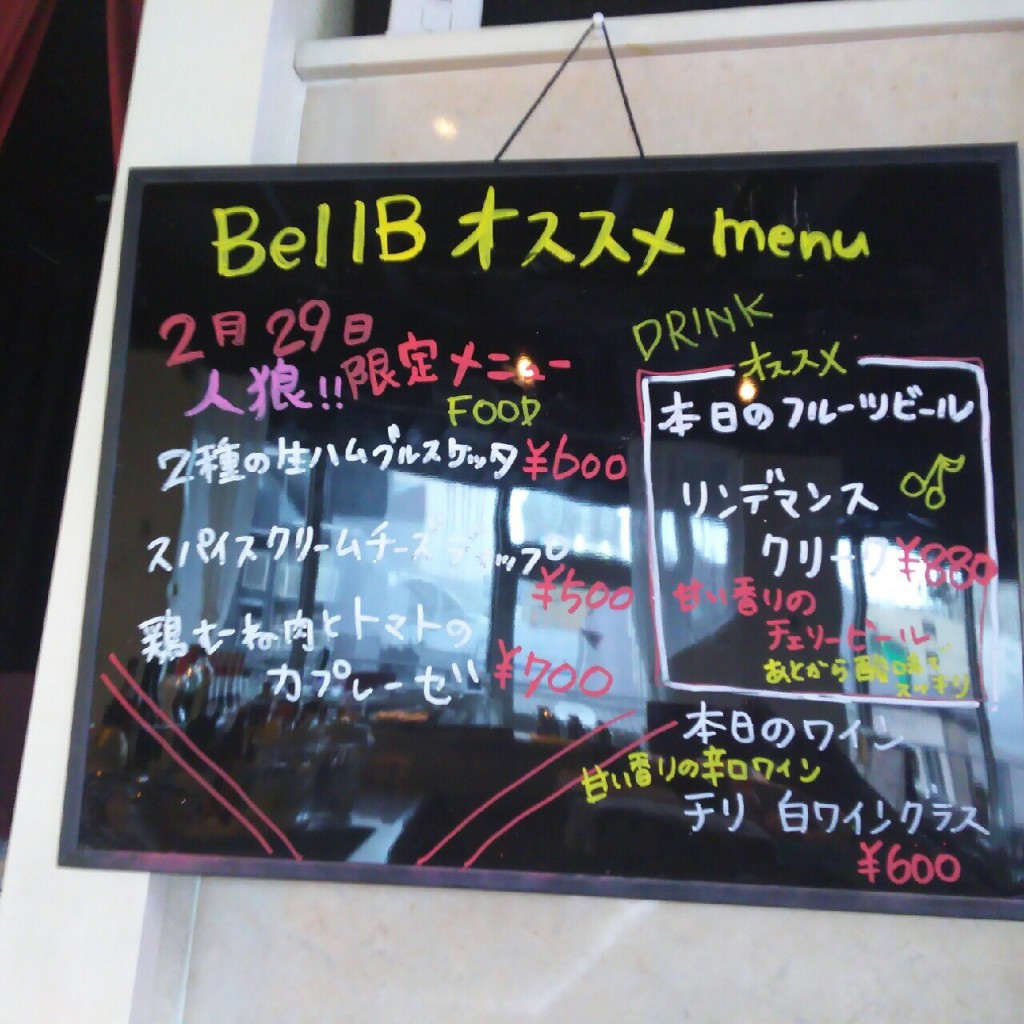 BellB オススメ menu
2月29日
人狼!! 限定メニュー
FOOD
2種の生ハムブルスケッタ ¥600
スパイスクリームチーズディップ
¥500
鶏むね肉とトマトの
カプレーゼ ¥700
DRINK
オススメ
本日のフルーツビール
リンデマンス
クリーク ¥880
甘い香りの
チェリービール
あとから酸味で
スッキリ
本日のワイン
甘い香りの辛口ワイン
チリ 白ワイングラス
¥600